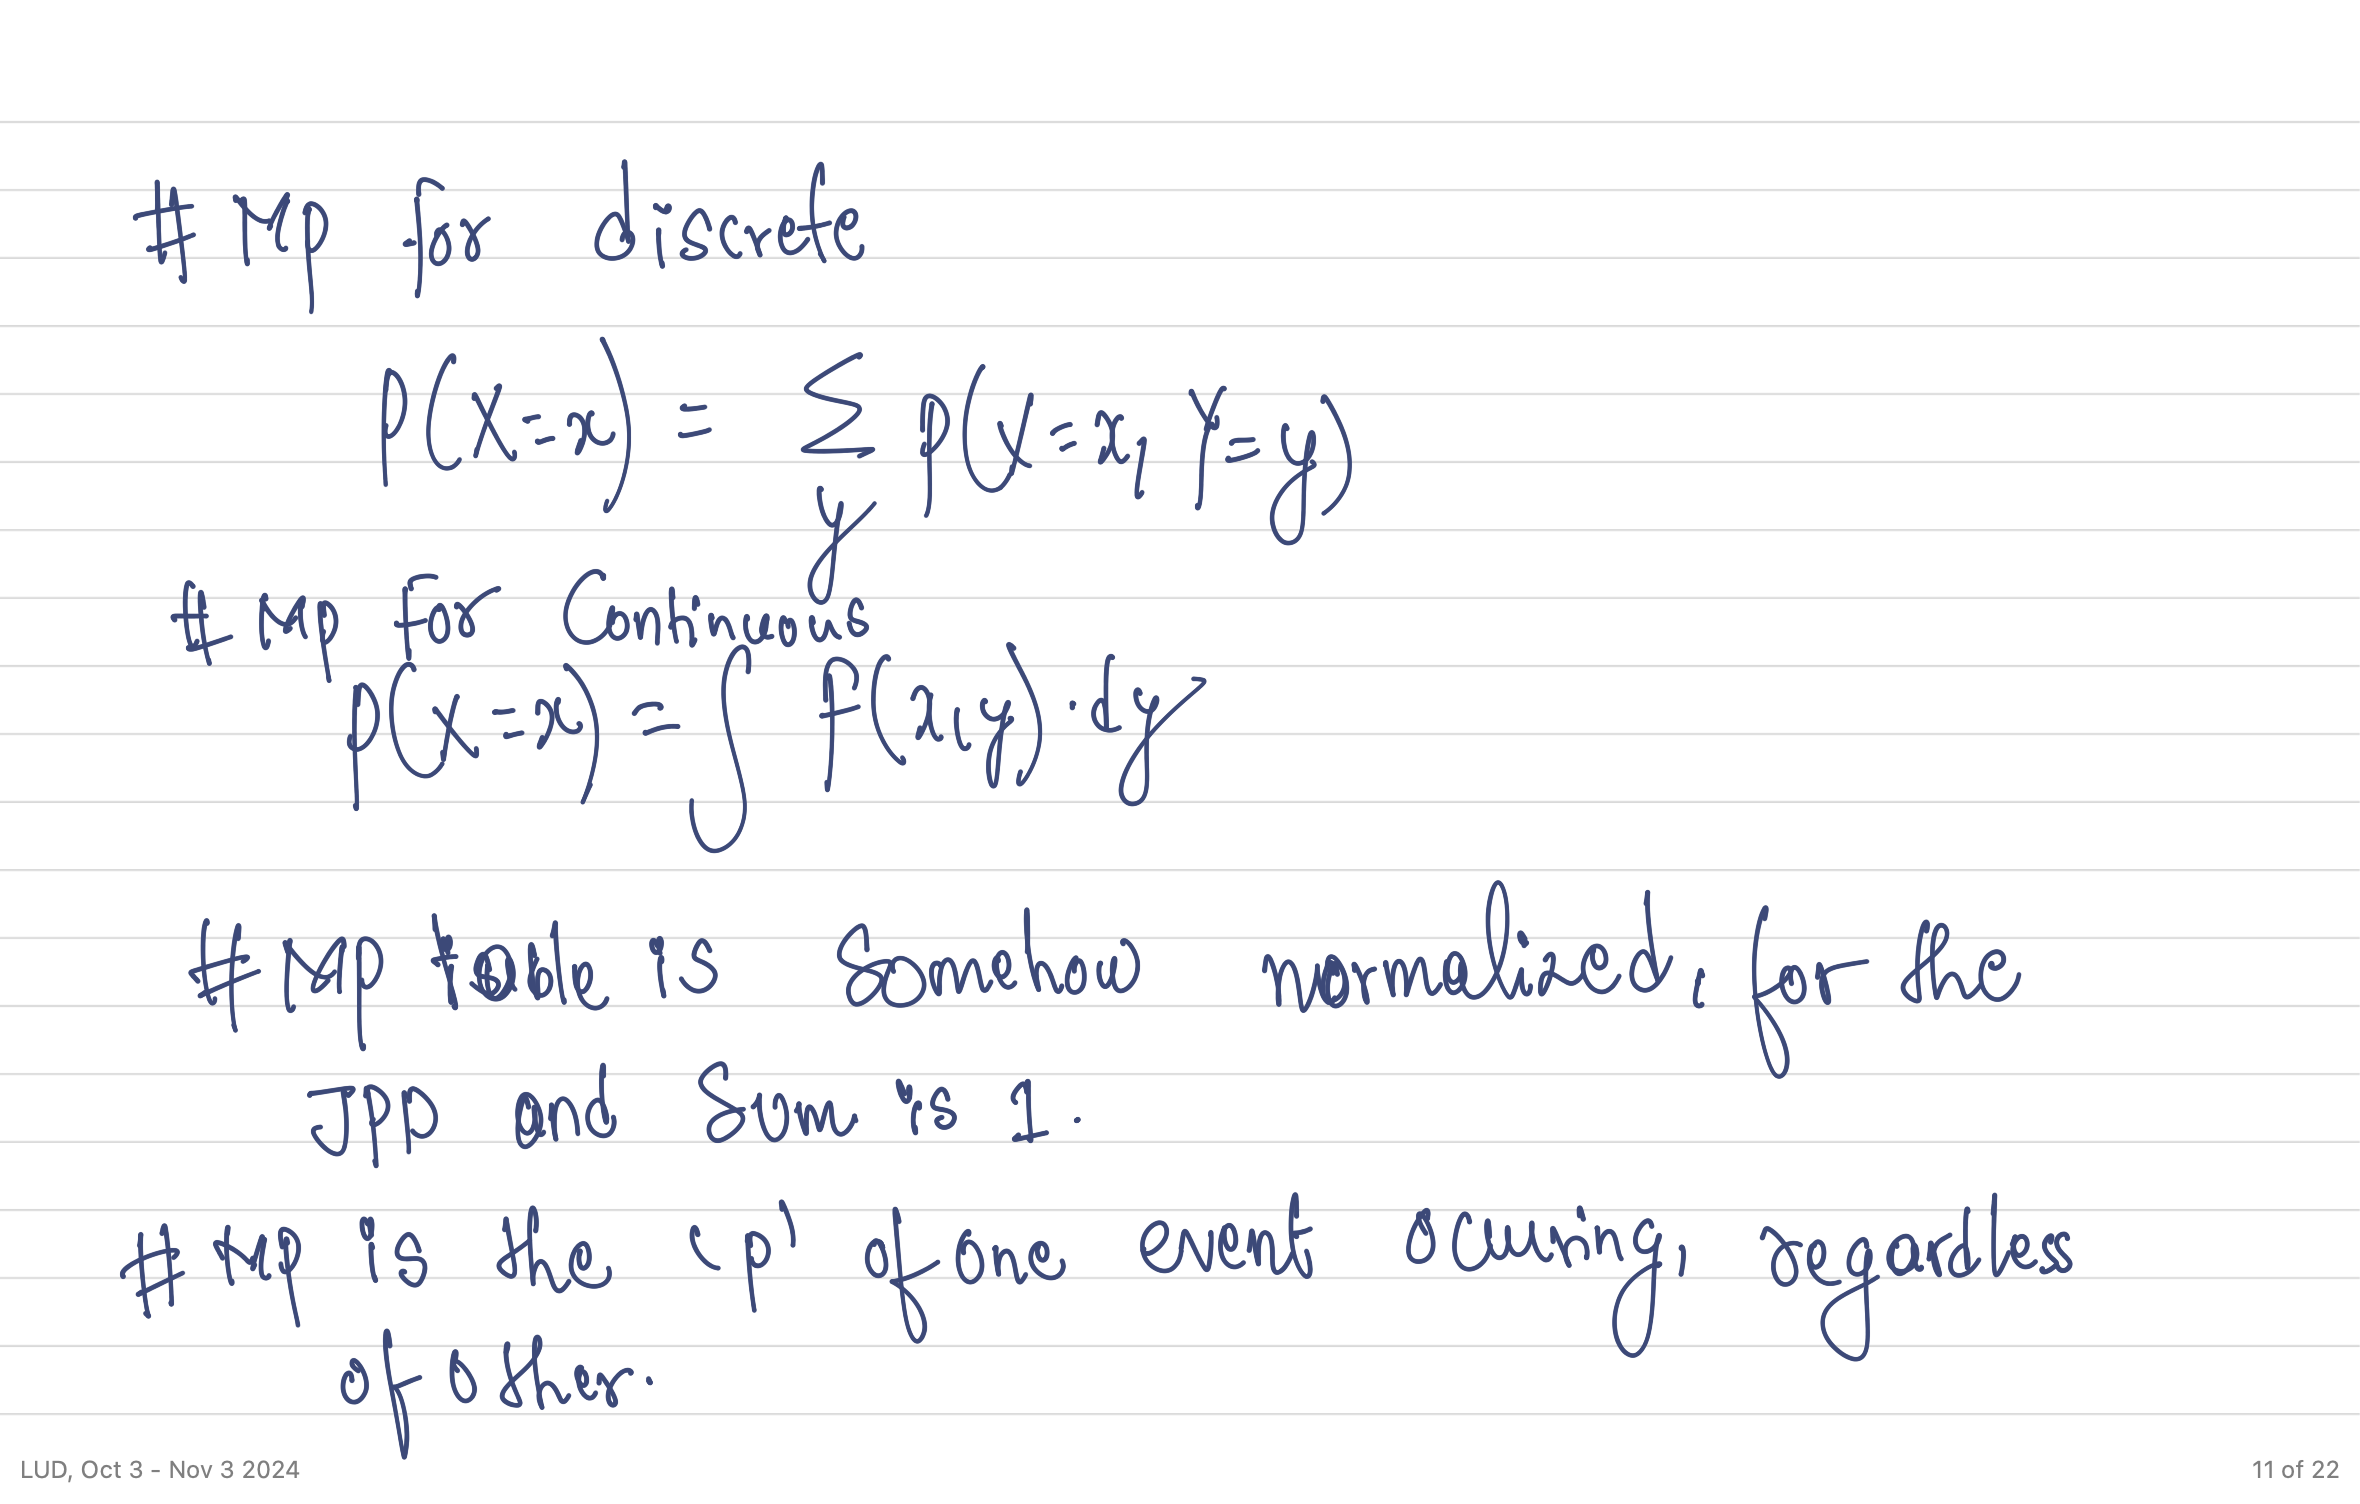 # MP for discrete
P(X=x) = Σ P(X=x, Y=y)
y
# MP For Continuous
P(X=x) = ∫ F(x,y) · dy
# MP table is Somehow normalized, for the
JPD and Sum is 1.
# MP is the 'p' of one event occuring, regardless
of other.
LUD, Oct 3 - Nov 3 2024
11 of 22